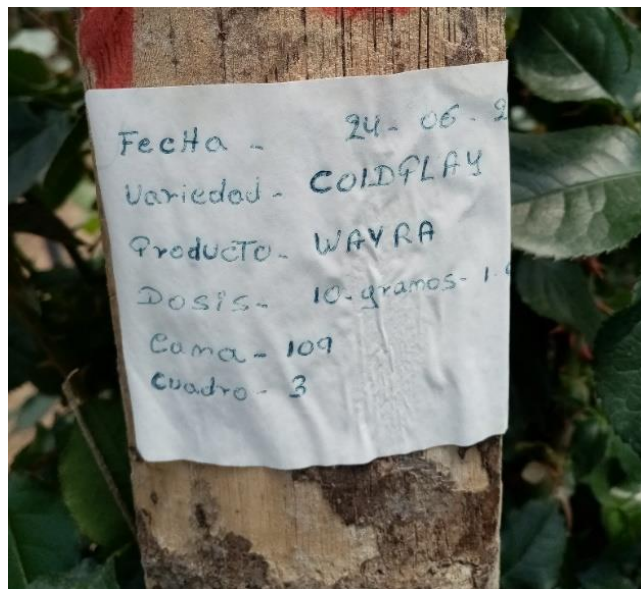 Fecha - 24-06-2
Variedad - COLDPLAY
Producto - WAYRA
Dosis - 10-gramos-1.
Cama - 109
Cuadro - 3